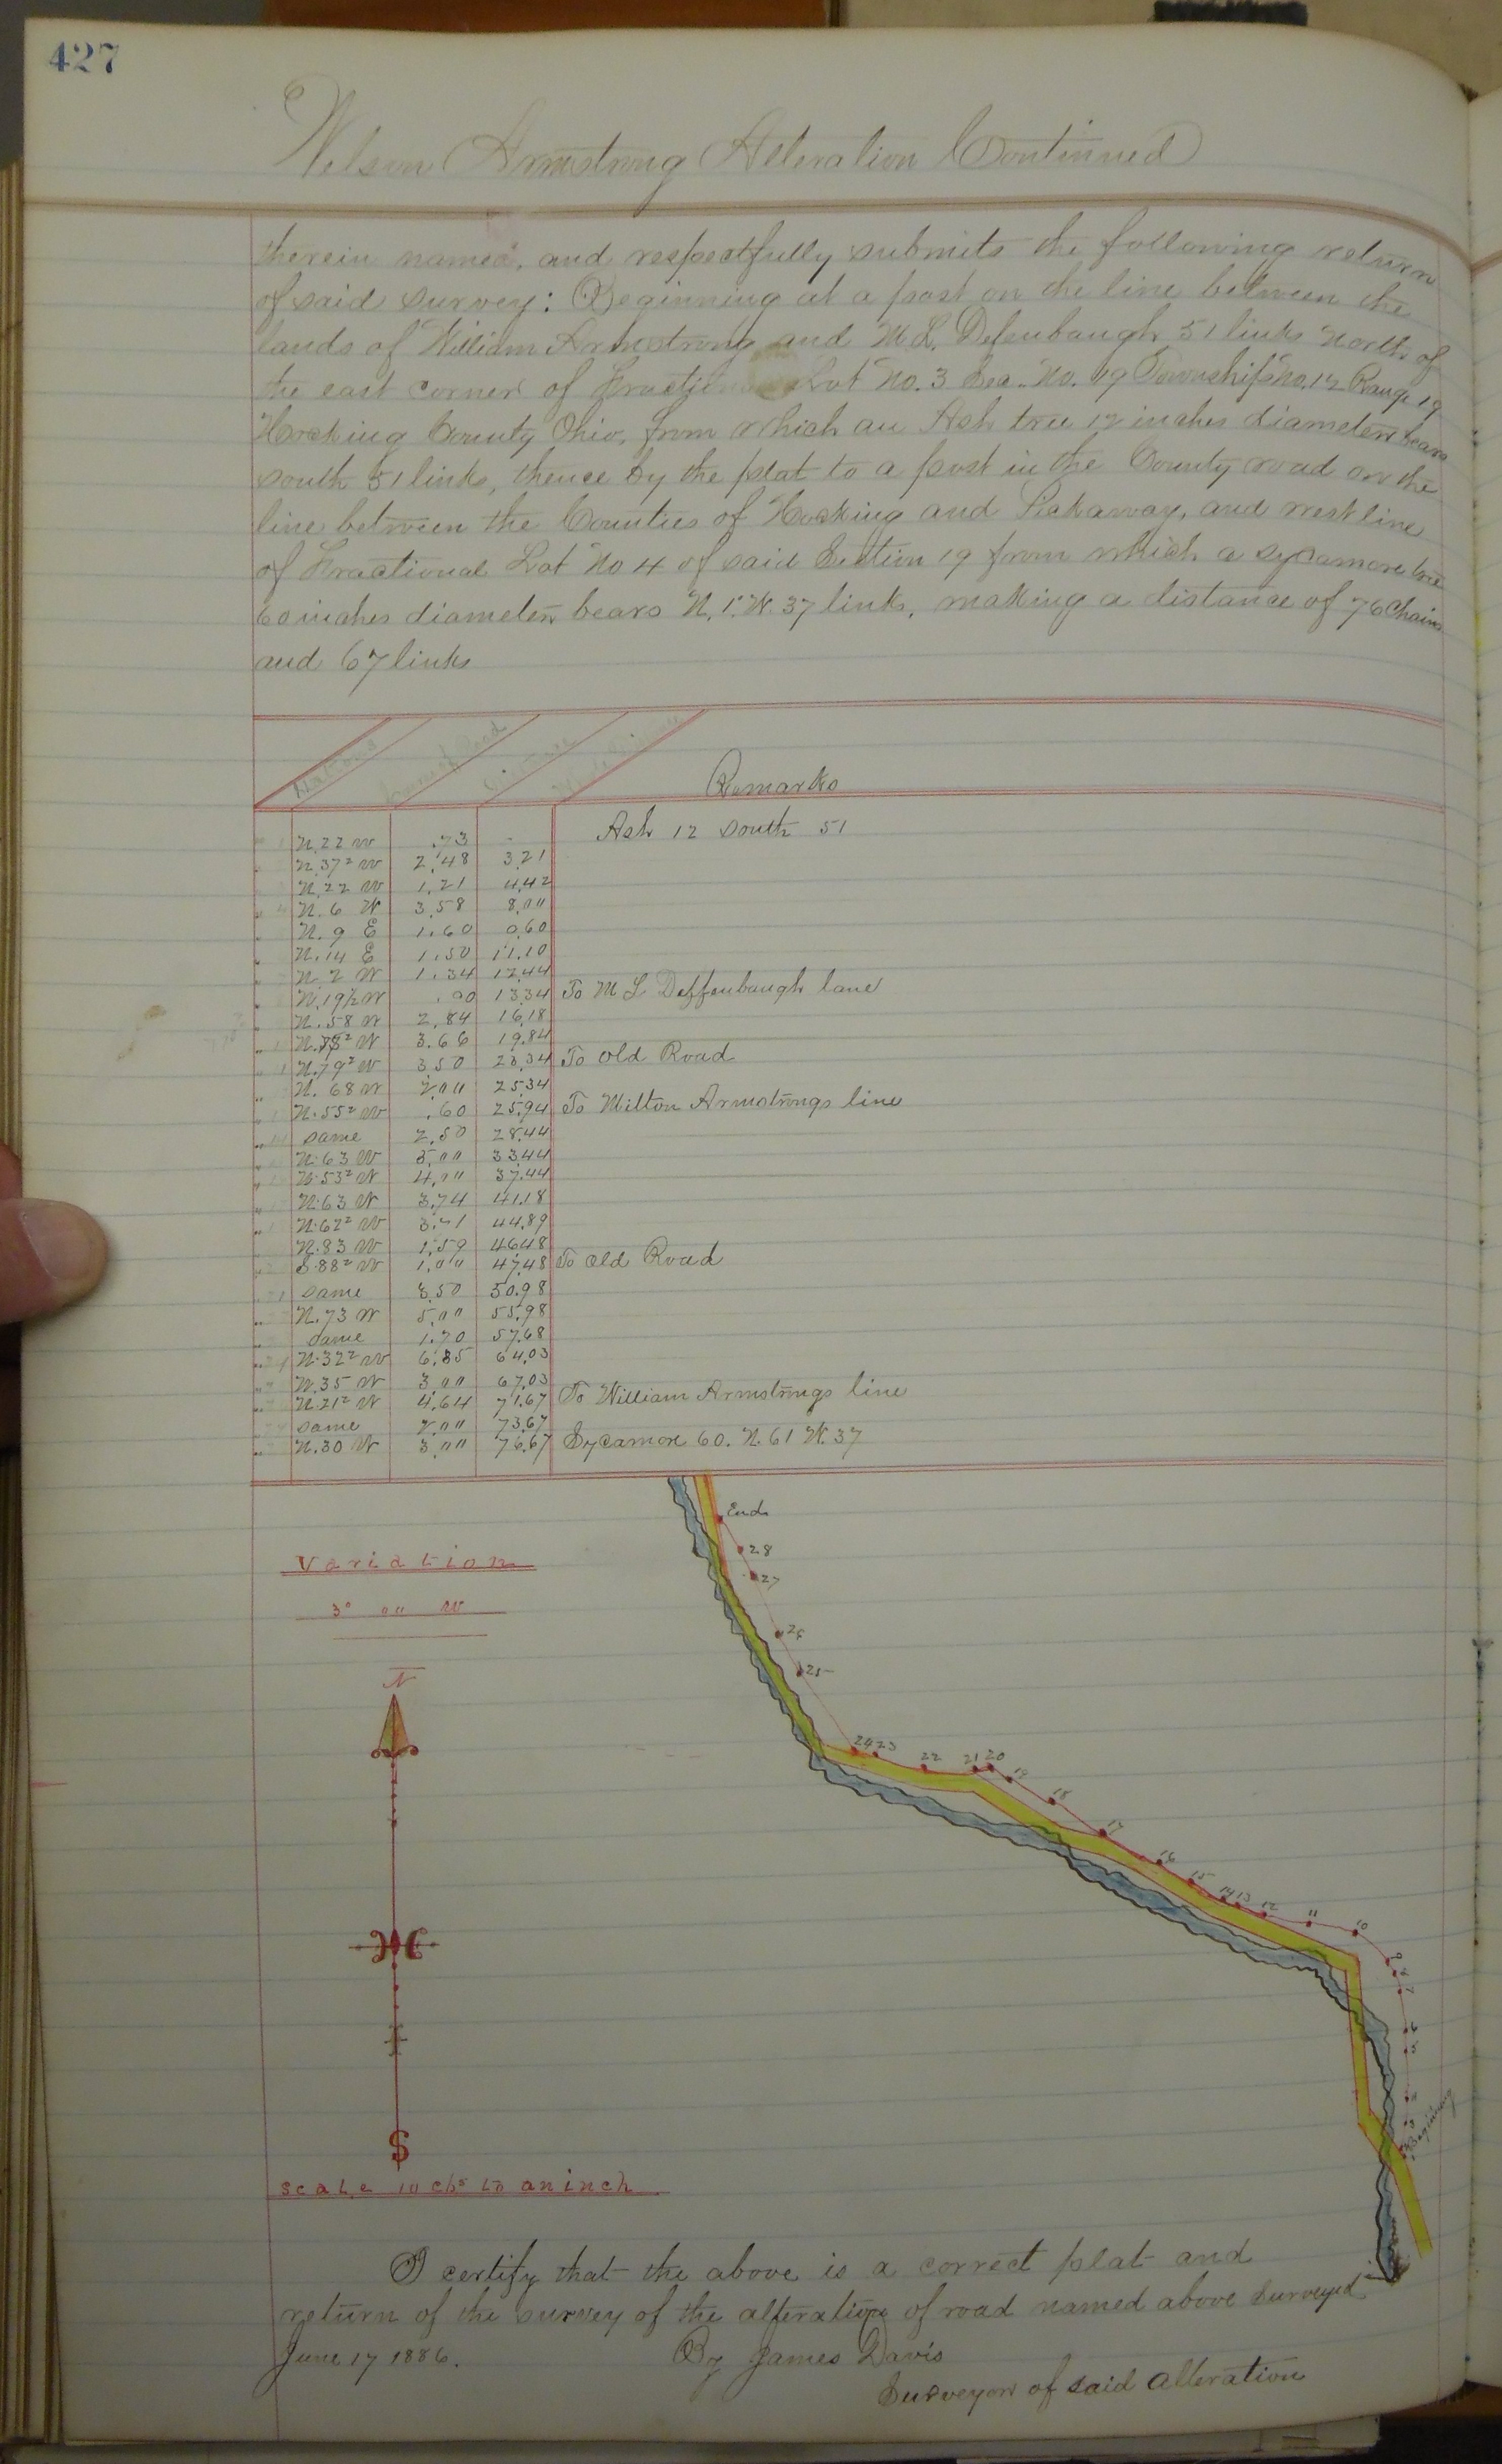 427
Nelson Armstrong Alteration Continued
therein named, and respectfully submits the following return
of said survey: Beginning at a post on the line between the
lands of William Armstrong and M L. Defenbaugh 51 links North of
the east corner of Lot No. 3 Sec. No. 19 Township No. 12 Range 19
Hocking County Ohio, from which an Ash tree 12 inches diameter bears
south 51 links, thence by the plat to a post in the County road on the
line between the Counties of Hocking and Pickaway, and west line
of Fractional Lot No 4 of said Section 19 from which a sycamore tree
60 inches diameter bears N. W. 37 links, making a distance of 76 Chains
and 67 links
Stations Remarks
N. 22 W .73 Ash 12 south 51
N. 37² W 2.48 3.21
N. 22 W 1.21 4.42
N. 6 W 3.58 8.00
N. 9 E 1.60 9.60
N. 14 E 1.50 11.10
N. 2 W 1.34 12.44
N. 19½ W .90 13.34 To M L Deffenbaugh lane
N. 58 W 2.84 16.18
W 3.66 19.84
N. 79² W 3.50 23.34 To Old Road
N. 68 W 2.00 25.34
N. 55² W .60 25.94 To Milton Armstrongs line
same 2.50 28.44
N. 63 W 5.00 33.44
N. 53² W 4.00 37.44
N. 63 W 3.74 41.18
N. 62² W 3.71 44.89
N. 83 W 1.59 46.48
S. 88² W 1.00 47.48 To Old Road
21 same 3.50 50.98
N. 73 W 5.00 55.98
same 1.70 57.68
24 N. 32² W 6.35 64.03
N. 35 W 3.00 67.03
N. 21² W 4.64 71.67 To William Armstrongs line
same 2.00 73.67
N. 30 W 3.00 76.67 Sycamore 60. N. 61 W. 37
End
28
27
26
25
24 23
22
21 20
19
18
17
16
15
14 13
12
11
10
9
8
7
6
5
4
3
Beginning
Variation
3° 00 W
N
S
Scale 10 chs to an inch
I certify that the above is a correct plat and
return of the survey of the alteration of road named above Surveyed
June 17 1886. By James Davis
Surveyor of said alteration